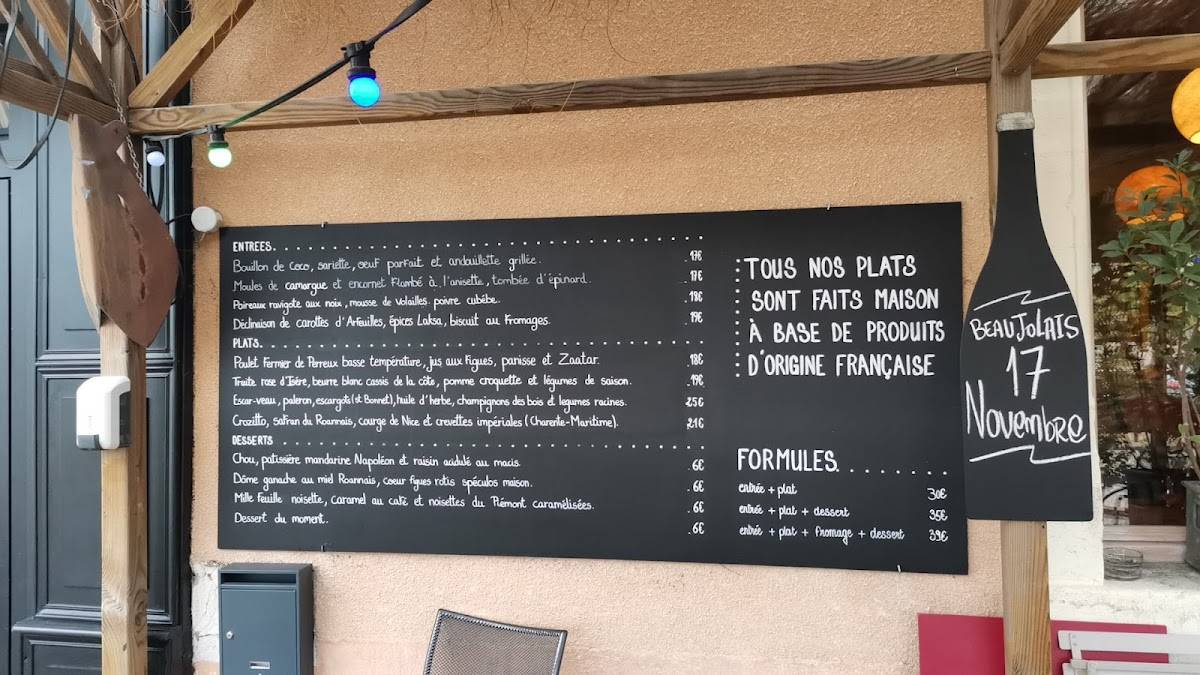 ENTREES
Bouillon de Coco, sariette, oeuf parfait et andouillette grillée. 17€
Moules de camargue et encornet flambé à l'anisette, tombée d'épinard. 17€
Poireaux ravigote aux noix, mousse de volailles. poivre cubèbe. 18€
Déclinaison de carottes d'Arfeuilles, épices Laksa, biscuit au fromages. 19€
PLATS
Poulet Fermier de Perreux basse température, jus aux figues, panisse et Zaatar. 18€
Truite rose d'Isère, beurre blanc cassis de la côte, pomme croquette et légumes de saison. 19€
Escar-veau, paleron, escargots (st Bonnet), huile d'herbe, champignons des bois et legumes racines. 25€
Crozitto, safran du Roannais, courge de Nice et crevettes impériales (Charente-Maritime). 21€
DESSERTS
Chou, patissière mandarine Napoléon et raisin acidulé au macis. 6€
Dôme ganache au miel Roannais, coeur figues rotis spéculos maison. 6€
Mille feuille noisette, Caramel au café et noisettes du Piémont caramélisées. 6€
Dessert du moment. 6€
TOUS NOS PLATS
SONT FAITS MAISON
À BASE DE PRODUITS
D'ORIGINE FRANÇAISE
FORMULES
entrée + plat 30€
entrée + plat + dessert 35€
entrée + plat + fromage + dessert 39€
BEAUJOLAIS
17
Novembre